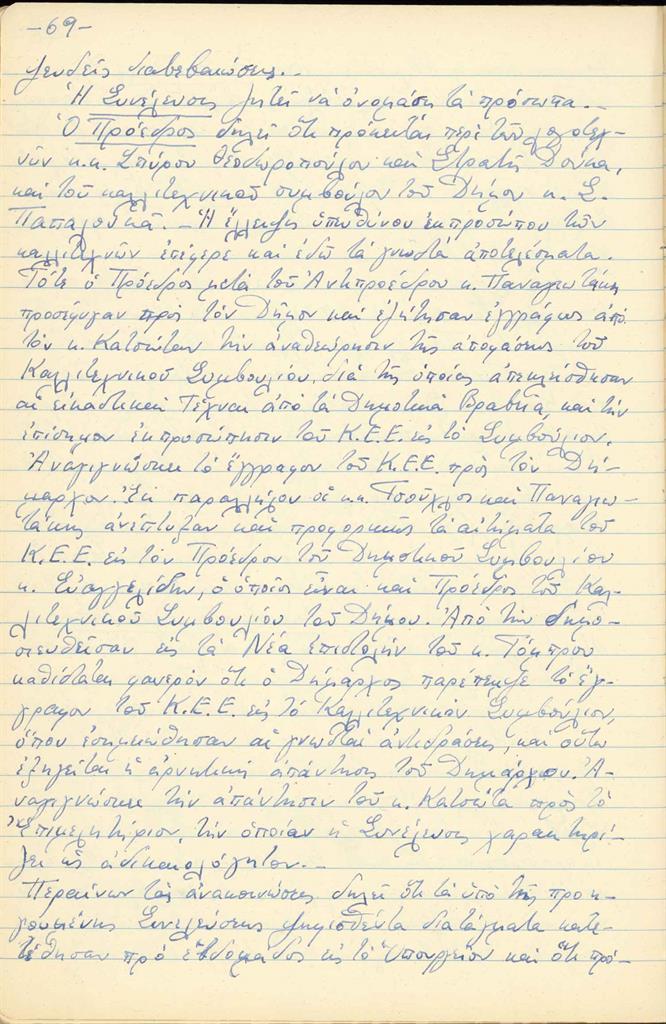 -69-
ψευδεῖς διαβεβαιώσεις.-
Ἡ Συνέλευσις ζητεῖ νὰ ὀνομάση τὰ πρόσωπα.-
Ὁ Πρόεδρος δηλεῖ ὅτι πρόκειται περὶ τῶν λογοτεχ-
νῶν κ.κ. Σπύρου Θεοδωροπούλου καὶ Στρατῆ Δούκα,
καὶ τοῦ καλλιτεχνικοῦ συμβούλου τοῦ Δήμου κ. Σ.
Παπαλουκᾶ. - Ἡ ἔλλειψις ὑπευθύνου ἐκπροσώπου τῶν
καλλιτεχνῶν ἐπέφερε καὶ ἐδῶ τὰ γνωστὰ ἀποτελέσματα.
Τότε ὁ Πρόεδρος μετὰ τοῦ Ἀντιπροέδρου κ. Παναγιωτάκη
προσέφυγαν πρὸς τὸν Δῆμον καὶ ἐζήτησαν ἐγγράφως ἀπὸ
τὸν κ. Κατσώταν τὴν ἀναθεώρησιν τῆς ἀποφάσεως τοῦ
Καλλιτεχνικοῦ Συμβουλίου, διὰ τῆς ὁποίας ἀπεκλείσθησαν
αἱ εἰκαστικαὶ Τέχναι ἀπὸ τὰ Δημοτικὰ Βραβεῖα, καὶ τὴν
ἐπίσημον ἐκπροσώπησιν τοῦ Κ.Ε.Ε. εἰς τὸ Συμβούλιον.
Ἀναγιγνώσκει τὸ ἔγγραφον τοῦ Κ.Ε.Ε. πρὸς τὸν Δή-
μαρχον. Ἐκ παραλλήλου οἱ κ.κ. Τσοῦχλος καὶ Παναγιω-
τάκης ἀνέπτυξαν καὶ προφορικῶς τὰ αἰτήματα τοῦ
Κ.Ε.Ε. εἰς τὸν Πρόεδρον τοῦ Δημοτικοῦ Συμβουλίου
κ. Εὐαγγελίδην, ὁ ὁποῖος εἶναι καὶ Πρόεδρος τοῦ Καλ-
λιτεχνικοῦ Συμβουλίου τοῦ Δήμου. Ἀπὸ τὴν δημο-
σιευθεῖσαν εἰς τὰ Νέα ἐπιστολὴν τοῦ κ. Τόμπρου
καθίσταται φανερὸν ὅτι ὁ Δήμαρχος παρέπεμψε τὸ ἔγ-
γραφον τοῦ Κ.Ε.Ε. εἰς τὸ Καλλιτεχνικὸν Συμβούλιον,
ὅπου ἐσημειώθησαν αἱ γνωσταὶ ἀντιδράσεις, καὶ οὕτω
ἐξηγεῖται ἡ ἀρνητικὴ ἀπάντησις τοῦ Δημάρχου. Ἀ-
ναγιγνώσκει τὴν ἀπάντησιν τοῦ κ. Κατσώτα πρὸς τὸ
Ἐπιμελητήριον, τὴν ὁποίαν ἡ Συνέλευσις χαρακτηρί-
ζει ὡς ἀδικαιολόγητον.-
Περαίνων τὰς ἀνακοινώσεις δηλεῖ ὅτι τὰ ὑπὸ τῆς προη-
γουμένης Συνελεύσεως ψηφισθέντα διατάγματα κατε-
τέθησαν πρὸ ἑβδομάδος εἰς τὸ Ὑπουργεῖον καὶ ὅτι πρό-